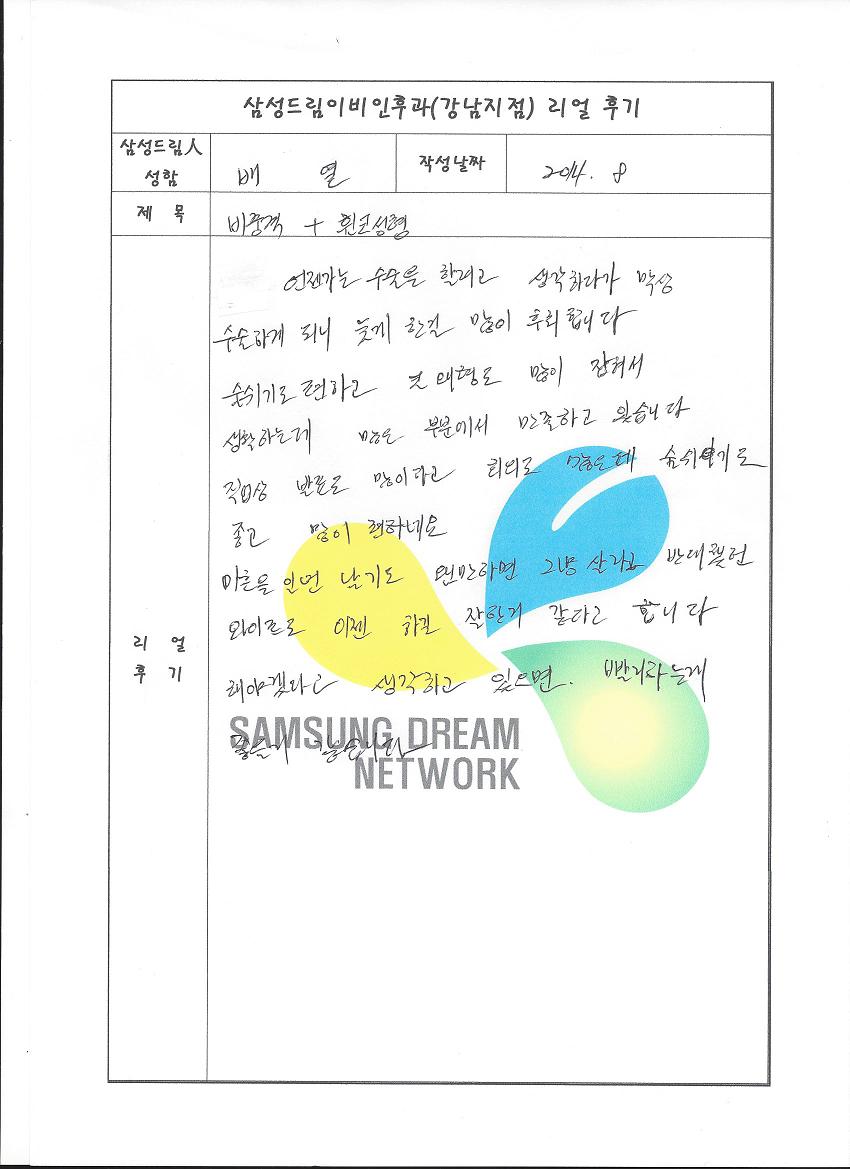 삼성드림이비인후과(강남지점) 리얼 후기
삼성드림人
성함
배 열
작성날짜
2014. 8
제 목
비중격 + 휜코성형
언젠가는 수술을 할려고 생각하다가 막상
수술하게 되니 늦게 한걸 많이 후회합니다
숨쉬기도 편하고 코 외형도 많이 잡혀서
생활하는데 많은 부분에서 만족하고 있습니다
직업상 발표도 많이하고 회의도 많은데 숨쉬기도
좋고 많이 편하네요
마흔을 인언 남기도 왠만하면 그냥 살라고 반대했던
와이프도 이젠 하길 잘한거 같다고 합니다
해야겠다고 생각하고 있으면. 빨리하는게
좋을거 같습니다
리 얼
후 기
SAMSUNG DREAM
NETWORK